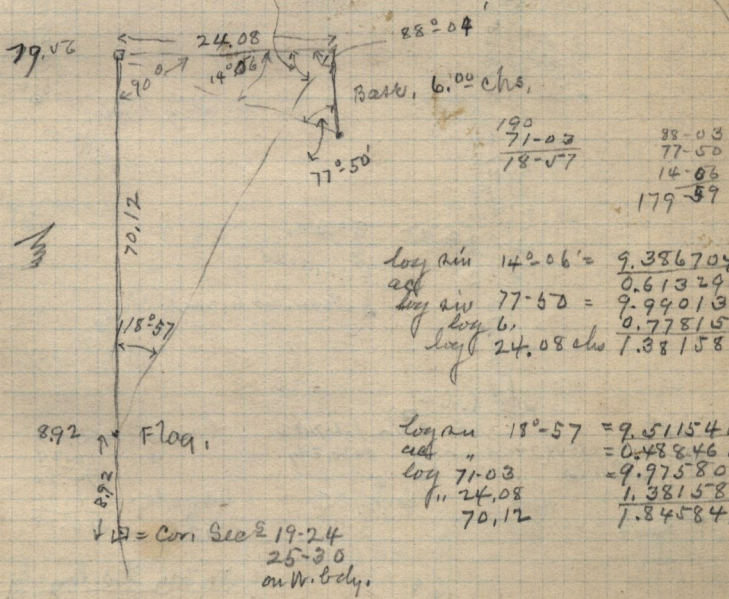 24.08
88°-04'
79.06
90°
14°06
Base, 6.00 chs.
77°-50'
190
71-03
18-57
88-03
77-50
14-06
179 59
70.12
log sin 14°-06' = 9.38670
0.61329
log sin 77-50 = 9.99013
log 6. 0.77815
log 24.08 chs 1.38158
18°57
8.92
Flag.
8.92
log sin 18°-57 = 9.51154
" = 0.48846
log 71-03 = 9.97580
" 24.08 1.38158
70.12 1.84584
= Cor. Secs 19-24
25-30
on W. bdy.